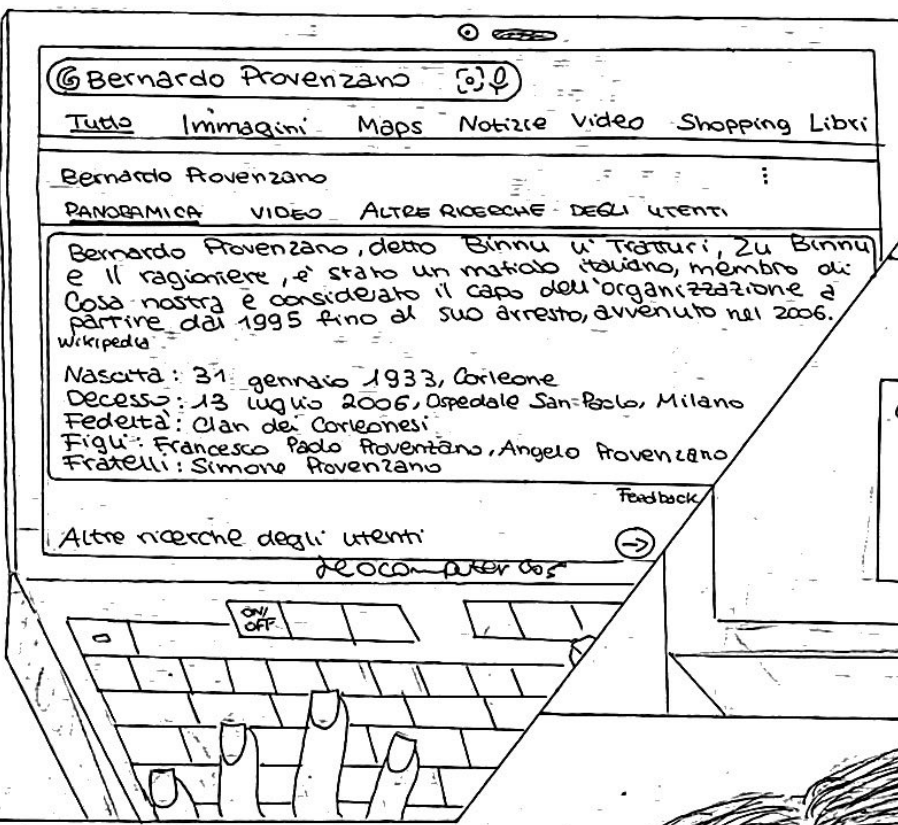 G Bernardo Provenzano
Tutto Immagini Maps Notizie Video Shopping Libri
Bernardo Provenzano
PANORAMICA VIDEO ALTRE RICERCHE DEGLI UTENTI
Bernardo Provenzano, detto Binnu u' Tratturi, Zu Binnu
e Il ragioniere, e' stato un mafioso italiano, membro di
Cosa nostra e considerato il capo dell'organizzazione a
partire dal 1995 fino al suo arresto, avvenuto nel 2006.
Wikipedia
Nascita: 31 gennaio 1933, Corleone
Decesso: 13 luglio 2006, Ospedale San Paolo, Milano
Fedeltà: Clan dei Corleonesi
Figli: Francesco Paolo Provenzano, Angelo Provenzano
Fratelli: Simone Provenzano
Feedback
Altre ricerche degli utenti
ON/
OFF